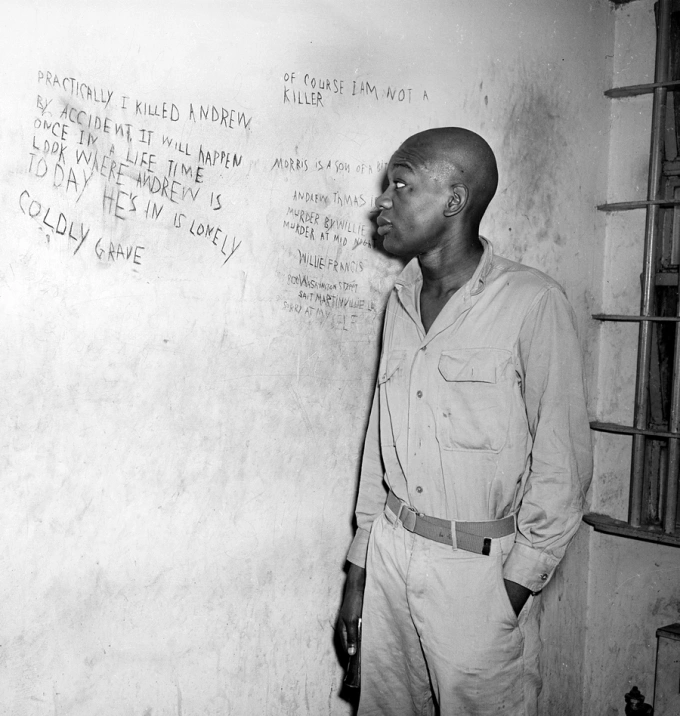 PRACTICALLY I KILLED ANDREW
BY ACCIDENT IT WILL HAPPEN
ONCE IN A LIFE TIME
LOOK WHERE ANDREW IS
TODAY HE'S IN IS LONELY
COLDLY GRAVE
OF COURSE I AM NOT A
KILLER
MORRIS IS A SON OF A
ANDREW THMAS
MURDER BY WILLIE
MURDER AT MID
WILLIE FRANCIS
WASHINGTON
SAIT MARTINVILLE